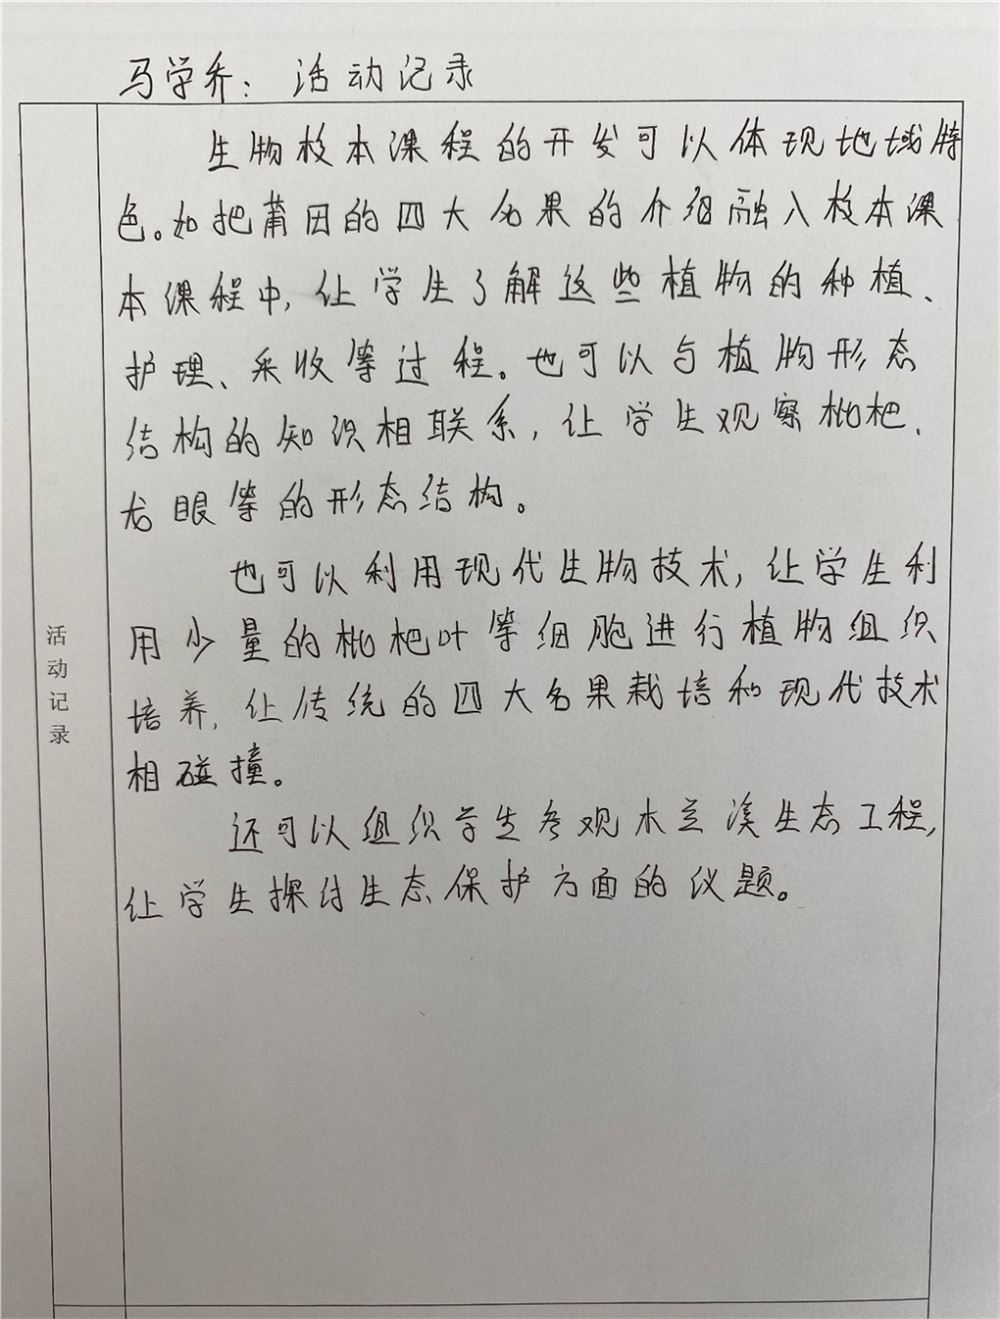 马学乔：活动记录
生物校本课程的开发可以体现地域特
色。如把莆田的四大名果的介绍融入校本课
本课程中，让学生了解这些植物的种植、
护理、采收等过程。也可以与植物形态
结构的知识相联系，让学生观察枇杷、
龙眼等的形态结构。
也可以利用现代生物技术，让学生利
用少量的枇杷叶等细胞进行植物组织
培养，让传统的四大名果栽培和现代技术
相碰撞。
还可以组织学生参观木兰溪生态工程，
让学生探讨生态保护方面的议题。
活动记录